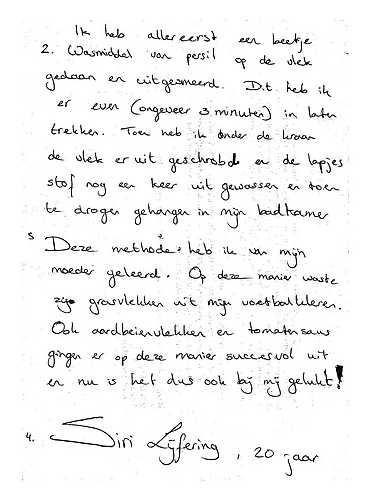 Ik heb allereerst een beetje
2. Wasmiddel van persil op de vlek
gedaan en uitgesmeerd. Dit heb ik
er even (ongeveer 3 minuten) in laten
trekken. Toen heb ik onder de kraan
de vlek eruit geschrobd en de lapjes
stof nog een keer uit gewassen en toen
te drogen gehangen in mijn badkamer
3 Deze methode heb ik van mijn
moeder geleerd. Op deze manier waste
zij grasvlekken uit mijn voetbalkleren.
Ook aardbeienvlekken en tomatensaus
gingen er op deze manier succesvol uit
en nu is het dus ook bij mij gelukt!
4. Siri Lijfering, 20 jaar